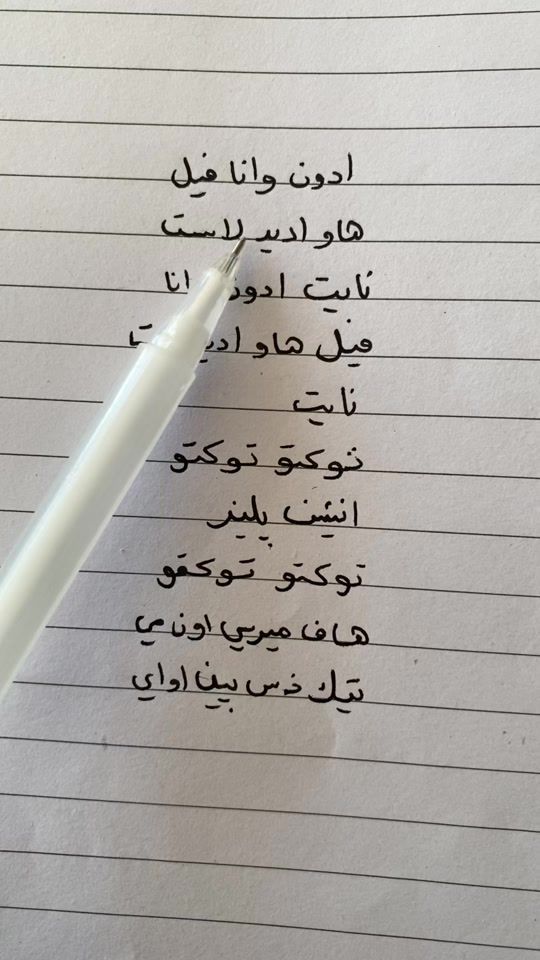 ادون وانا فيل
هاو اديد لاست
نايت ادون انا
فيل هاو اديد
نايت
توكتو توكتو
انيثن پليز
توكتو توكتو
هاف ميرسي اون مي
تيك ذس بين اواي